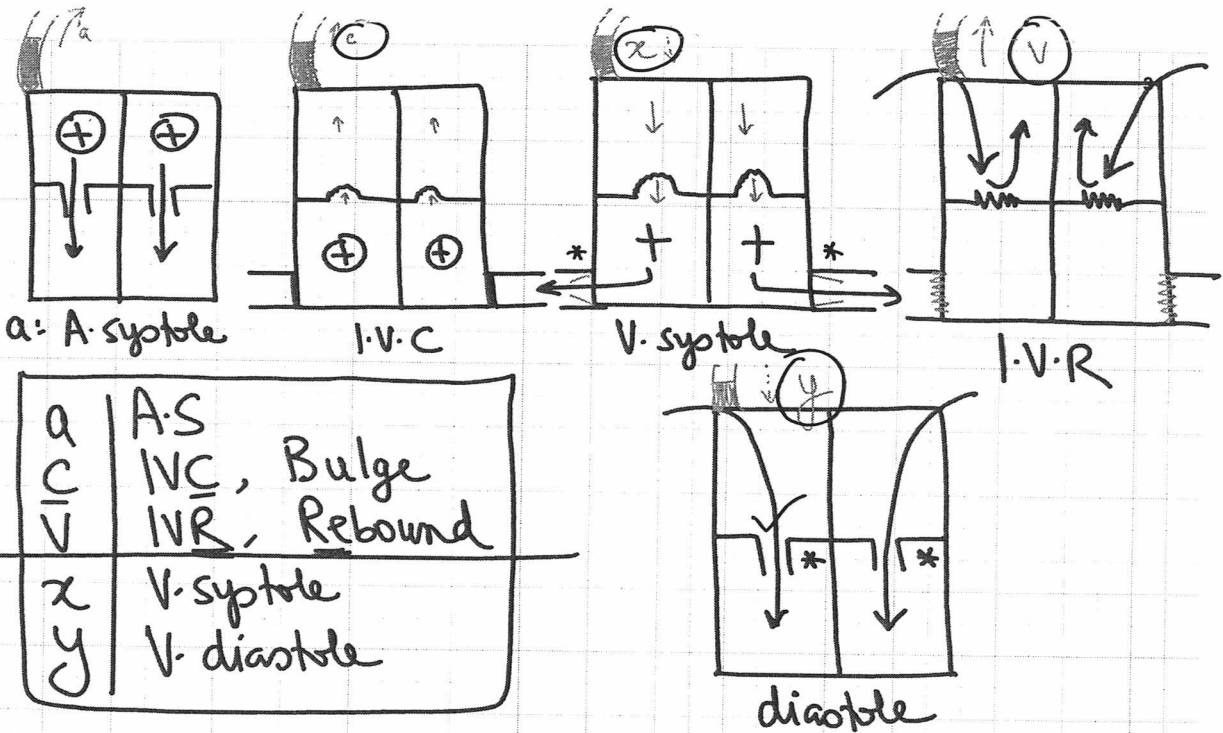 a
c
x
V
+ +
+ +
* + + *
a: A.systole
I.V.C
V.systole
I.V.R
y
a A.S
C IVC, Bulge
V IVR, Rebound
x V.systole
y V.diastole
* *
diastole